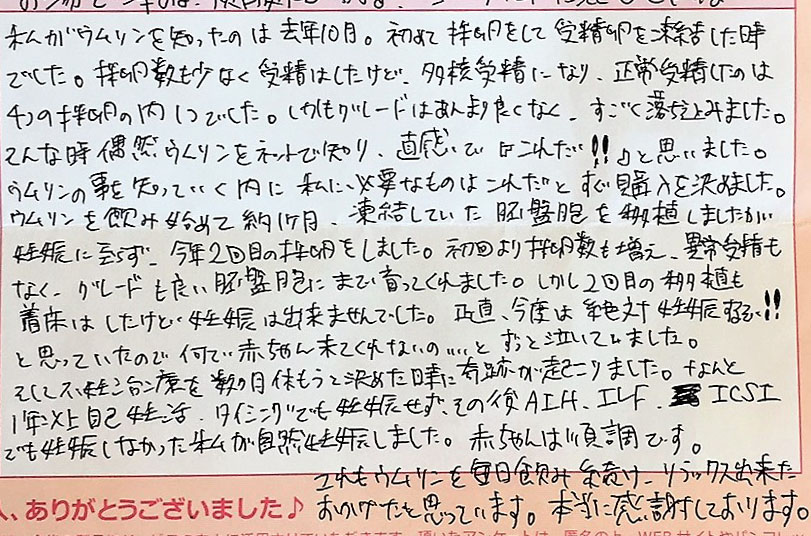 私がウムリンを知ったのは去年10月。初めて採卵をして受精卵を凍結した時
でした。採卵数も少なく受精はしたけど、多核受精になり、正常受精したのは
4つの採卵の内1つでした。しかもグレードはあんまり良くなく、すごく落ち込みました。
そんな時偶然ウムリンをネットで知り、直感いで「これだ!!」と思いました。
ウムリンの事を知っていく内に私に必要なものはこれだとすぐ購入を決めました。
ウムリンを飲み始めて約1ヶ月、凍結していた胚盤胞を移植しましたが
妊娠に至らず、今年2回目の採卵をしました。初回より採卵数も増え、異常受精も
なく、グレードも良い胚盤胞にまで育ってくれました。しかし2回目の移植も
着床はしたけど妊娠は出来ませんでした。正直、今度は絶対妊娠するぞ!!
と思っていたので何で赤ちゃん来てくれないの…とずっと泣いてました。
そして不妊治療を数ヶ月休もうと決めた時に奇跡が起こりました。なんと
1年以上自己妊活、タイミングでも妊娠せず、その後AIH、IVF、ICSI
でも妊娠しなかった私が自然妊娠しました。赤ちゃんは順調です。
これもウムリンを毎日飲み続け、リラックス出来た
おかげだと思っています。本当に感謝しております。
、ありがとうございました♪